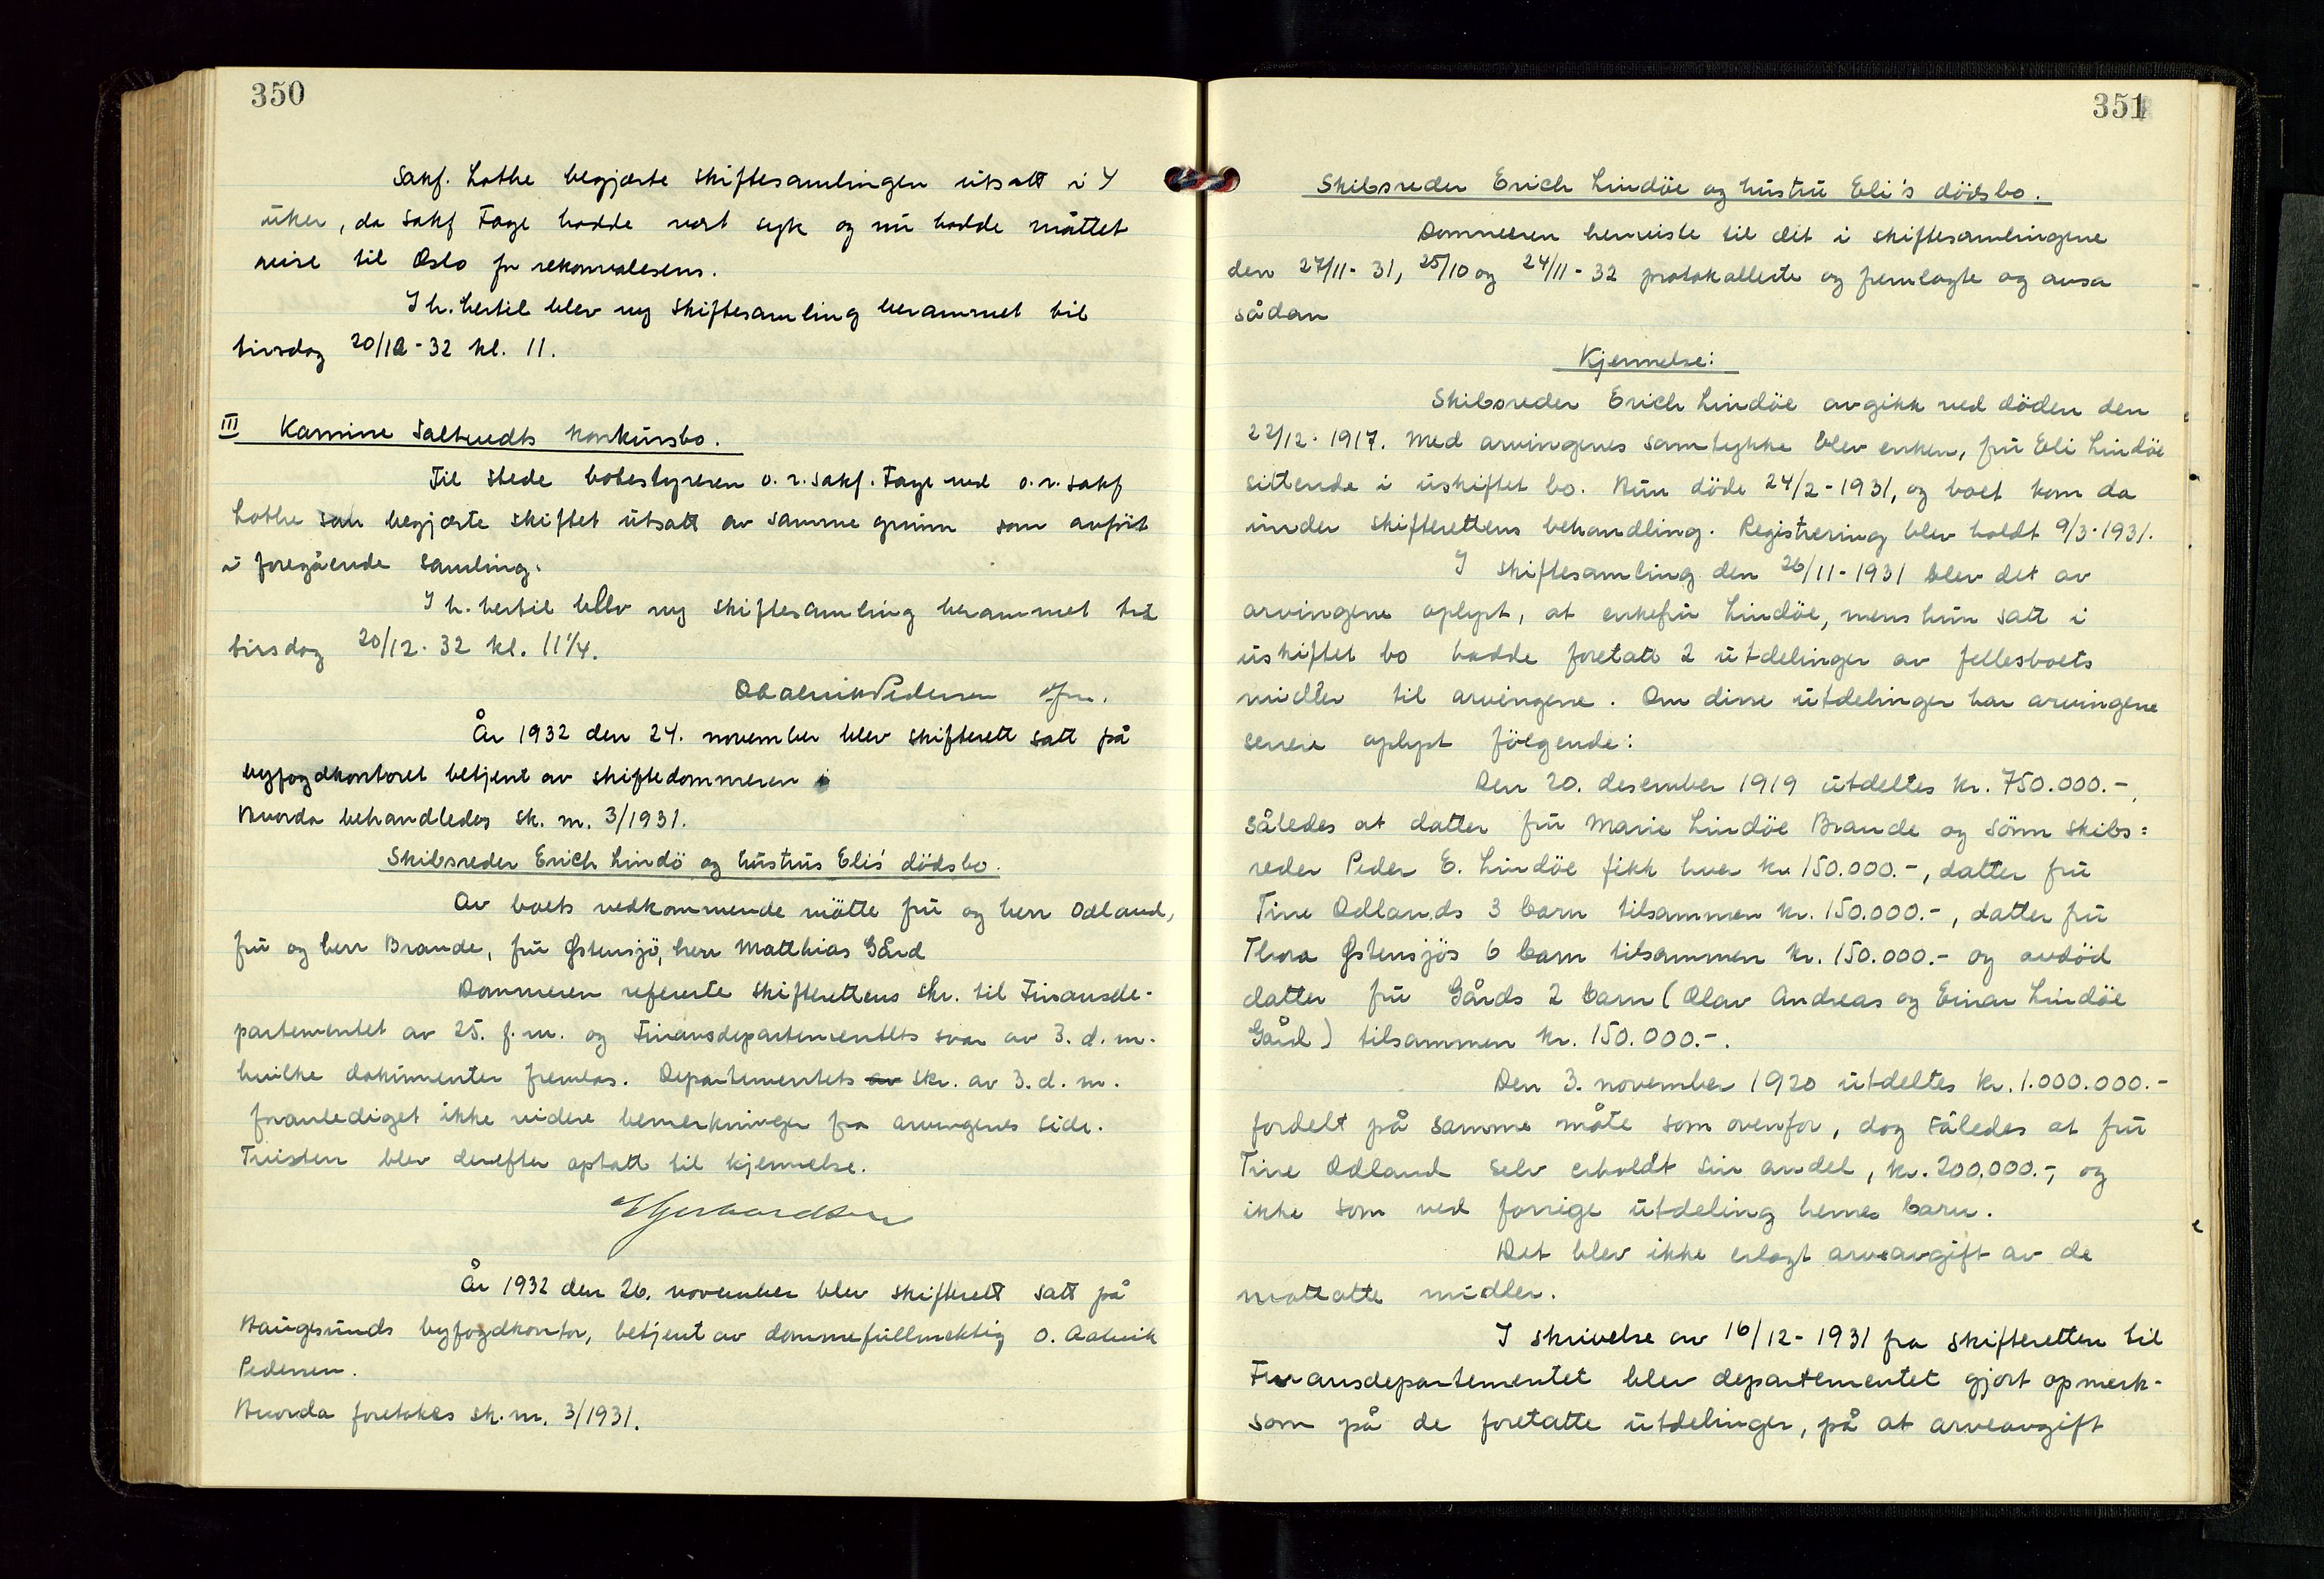 350
Sakf. Lothe begjærte skiftesamlingen utsatt i 4
uker, da sakf Fage hadde vært syk og nu hadde måttet
reise til Oslo for rekonvalesens.
I h. hertil blev ny skiftesamling berammet til
tirsdag 20/12-32 kl. 11.
III Kamine Saltvedts konkursbo.
Til stede bobestyreren o.r.sakf. Fage ved o.r. sakf
Lothe som begjærte skiftet utsatt av samme grunn som anført
i foregående samling.
I h. hertil blev ny skiftesamling berammet til
tirsdag 20/12. 32 kl. 11 1/4.
O Aalvik Pedersen
År 1932 den 24. november blev skifterett satt på
byfogdkontoret betjent av skiftedommeren
Hvorda behandledes sk. nr. 3/1931.
Skibsreder Erich Lindö og hustrus Elis dödsbo.
Av boets vedkommende mötte fru og herr Odland,
fru og herr Brande, fru Østensjö, herr Matthias Gård
Dommeren refererte skifterettens skr. til Finansde-
partementet av 25. f.m. og Finansdepartementets svar av 3. d.m.
hvilke dokumenter fremlas. Departementets av skr. av 3. d. m.
foranlediget ikke videre bemerkninger fra arvingenes side.
Tvisten blev derefter optatt til kjennelse.
År 1932 den 26. november blev skifterett satt på
Haugesunds byfogdkontor, betjent av dommerfullmektig O. Aalvik
Pedersen.
Hvorda foretokes sk. nr. 3/1931.
351
Skibsreder Erich Lindöe og hustru Eli's dödsbo.
Dommeren henviste til det i skiftesamlingene
den 27/11-31, 25/10 og 24/11-32 protokollerte og fremlagte og avsa
sådan
Kjennelse:
Skibsreder Erich Lindöe avgikk ved döden den
22/12-1917. Med arvingenes samtykke blev enken, fru Eli Lindöe
sittende i uskiftet bo. Hun döde 24/2-1931, og boet kom da
under skifterettens behandling. Registrering blev holdt 9/3-1931.
I skiftesamling den 26/11-1931 blev det av
arvingene oplyst, at enkefru Lindöe, mens hun satt i
uskiftet bo hadde foretatt 2 utdelinger av fellesboets
midler til arvingene. Om disse utdelinger har arvingene
senere oplyst fölgende:
Den 20. desember 1919 utdeltes kr. 750.000.-,
således at datter fru Marie Lindöe Brande og sönn skibs=
reder Peder E. Lindöe fikk hver kr. 150.000.-, datter fru
Tine Odlands 3 barn tilsammen kr. 150.000.-, datter fru
Thora Østensjös 6 barn tilsammen kr. 150.000.- og avdöd
datter fru Gårds 2 barn (Olav Andreas og Einar Lindöe
Gård) tilsammen kr. 150.000.-.
Den 3. november 1920 utdeltes kr. 1.000.000.-
fordelt på samme måte som ovenfor, dog således at fru
Tine Odland selv erholdt sin andel, kr. 200.000.-, og
ikke som ved forrige utdeling hennes barn.
Det blev ikke erlagt arveavgift av de
mottatte midler.
I skrivelse av 16/12-1931 fra skifteretten til
Finansdepartementet blev departementet gjort opmerk-
som på de foretatte utdelinger, på at arveavgift